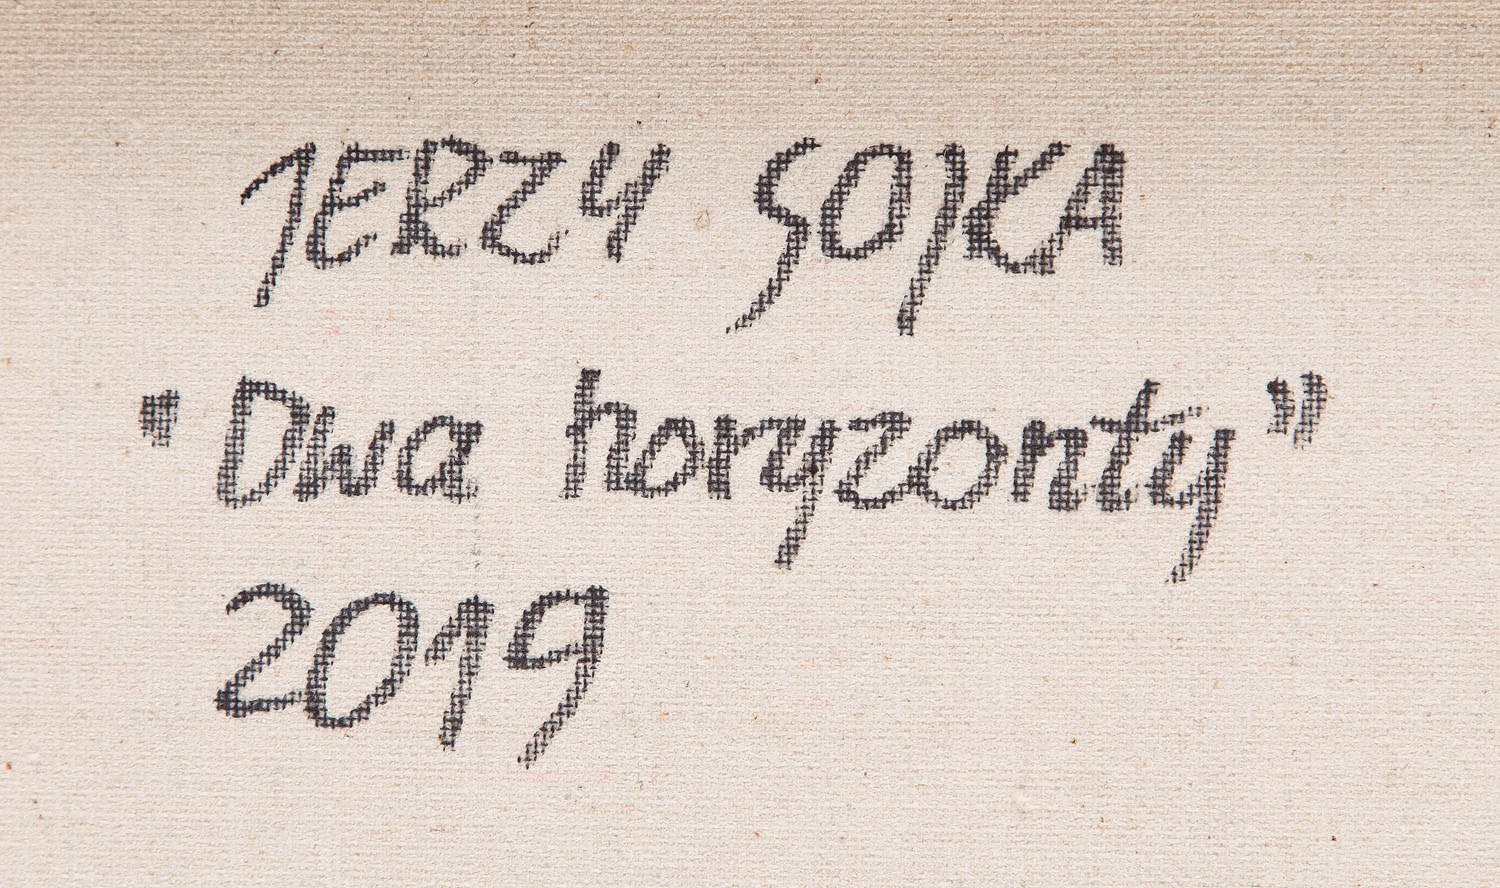 JERZY SOJKA
"Dwa horyzonty"
2019